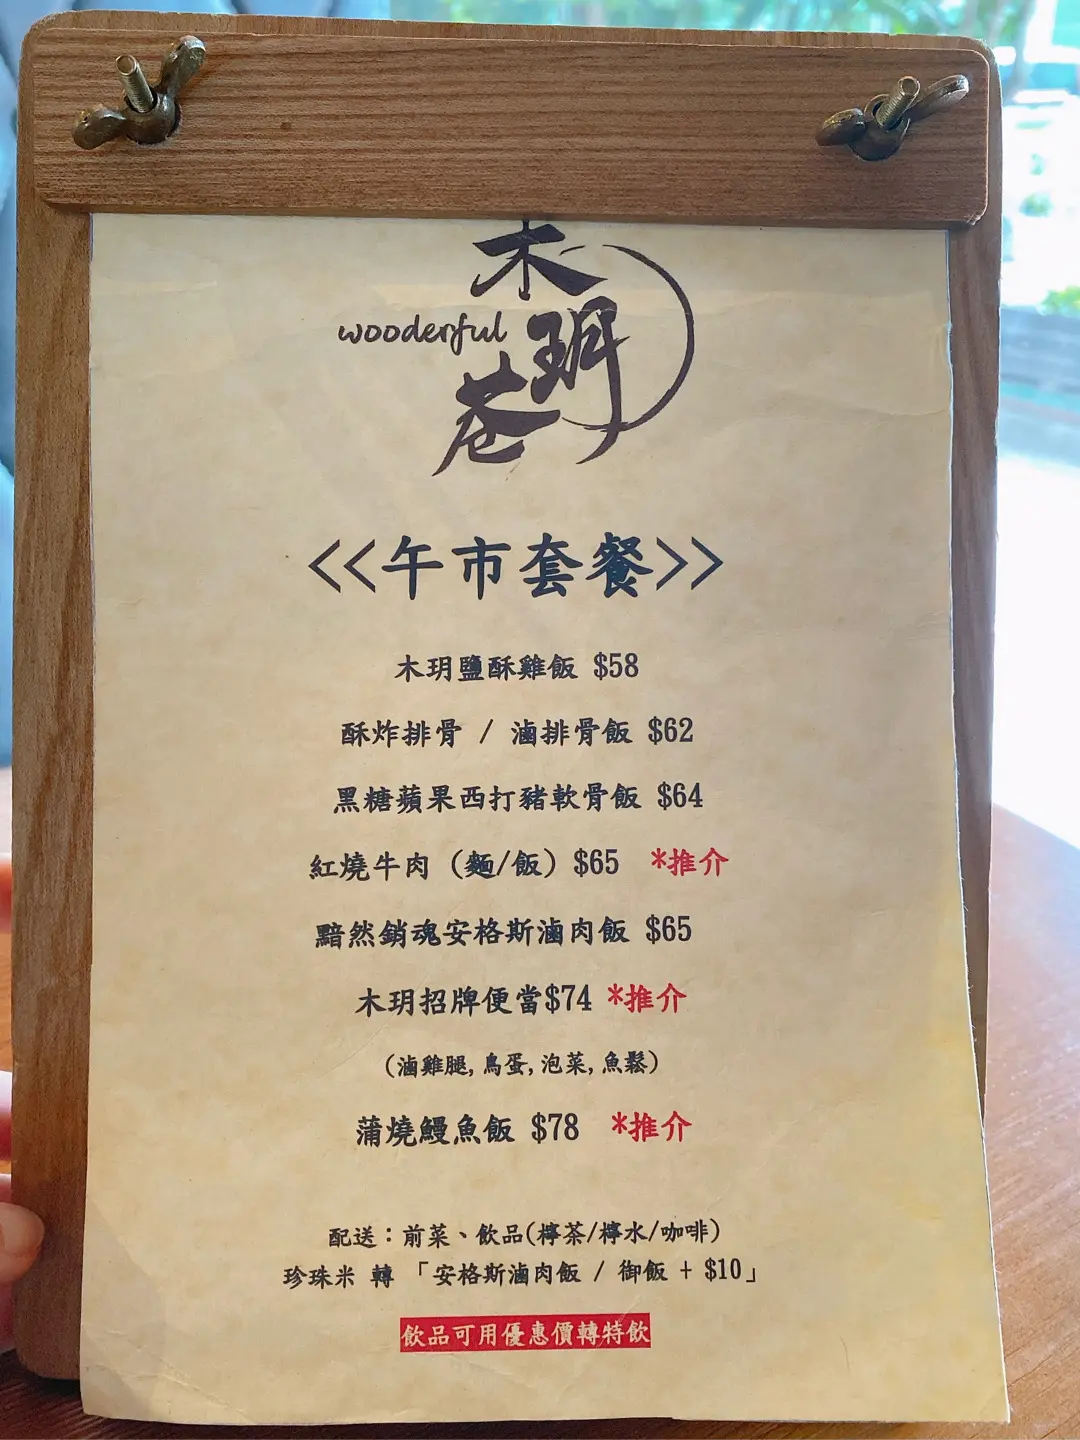 木玥巷
wooderful
<<午市套餐>>
木玥鹽酥雞飯 $58
酥炸排骨 / 滷排骨飯 $62
黑糖蘋果西打豬軟骨飯 $64
紅燒牛肉 (麵/飯) $65 *推介
黯然銷魂安格斯滷肉飯 $65
木玥招牌便當$74 *推介
(滷雞腿, 鳥蛋, 泡菜, 魚鬆)
蒲燒鰻魚飯 $78 *推介
配送：前菜、飲品(檸茶/檸水/咖啡)
珍珠米 轉 「安格斯滷肉飯 / 御飯 + $10」
飲品可用優惠價轉特飲